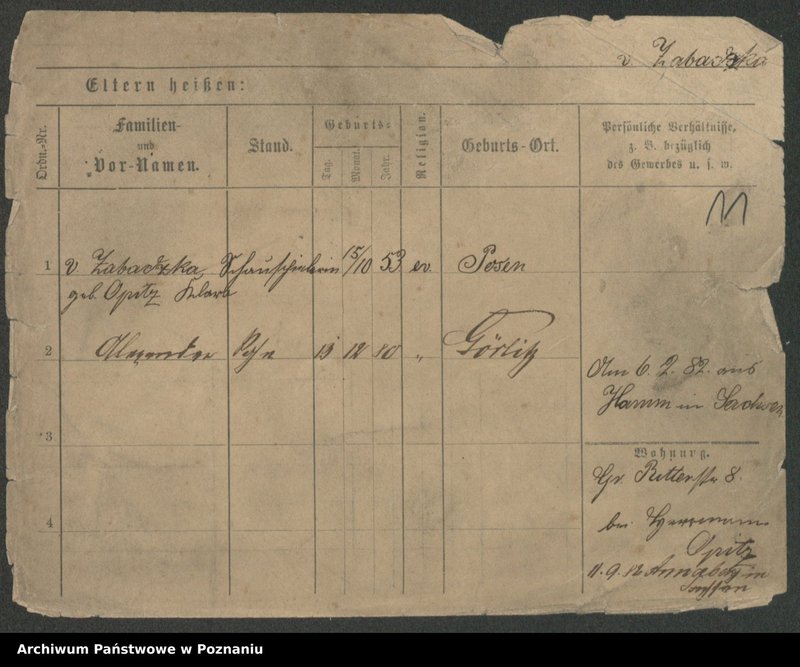 v Zabadzka
Eltern heißen:
Ordn.-Nr.
Familien-
und
Vor-Namen.
Stand.
Geburts-
Tag.
Monat.
Jahr.
Religion.
Geburts-Ort.
Persönliche Verhältnisse,
z. B. bezüglich
des Gewerbes u. s. w.
1 v Zabadzka, Schauspielerin 15/10 53 ev. Posen
geb. Opitz Klara
2 Alexander Sohn 13 12 80 " Görlitz
Am 6. 2. 82. aus
Hamm in Sachsen
3
Wohnung.
Gr. Ritterstr 8.
4
bei Herrmann
Opitz
11. 9. 82 in
Archiwum Państwowe w Poznaniu